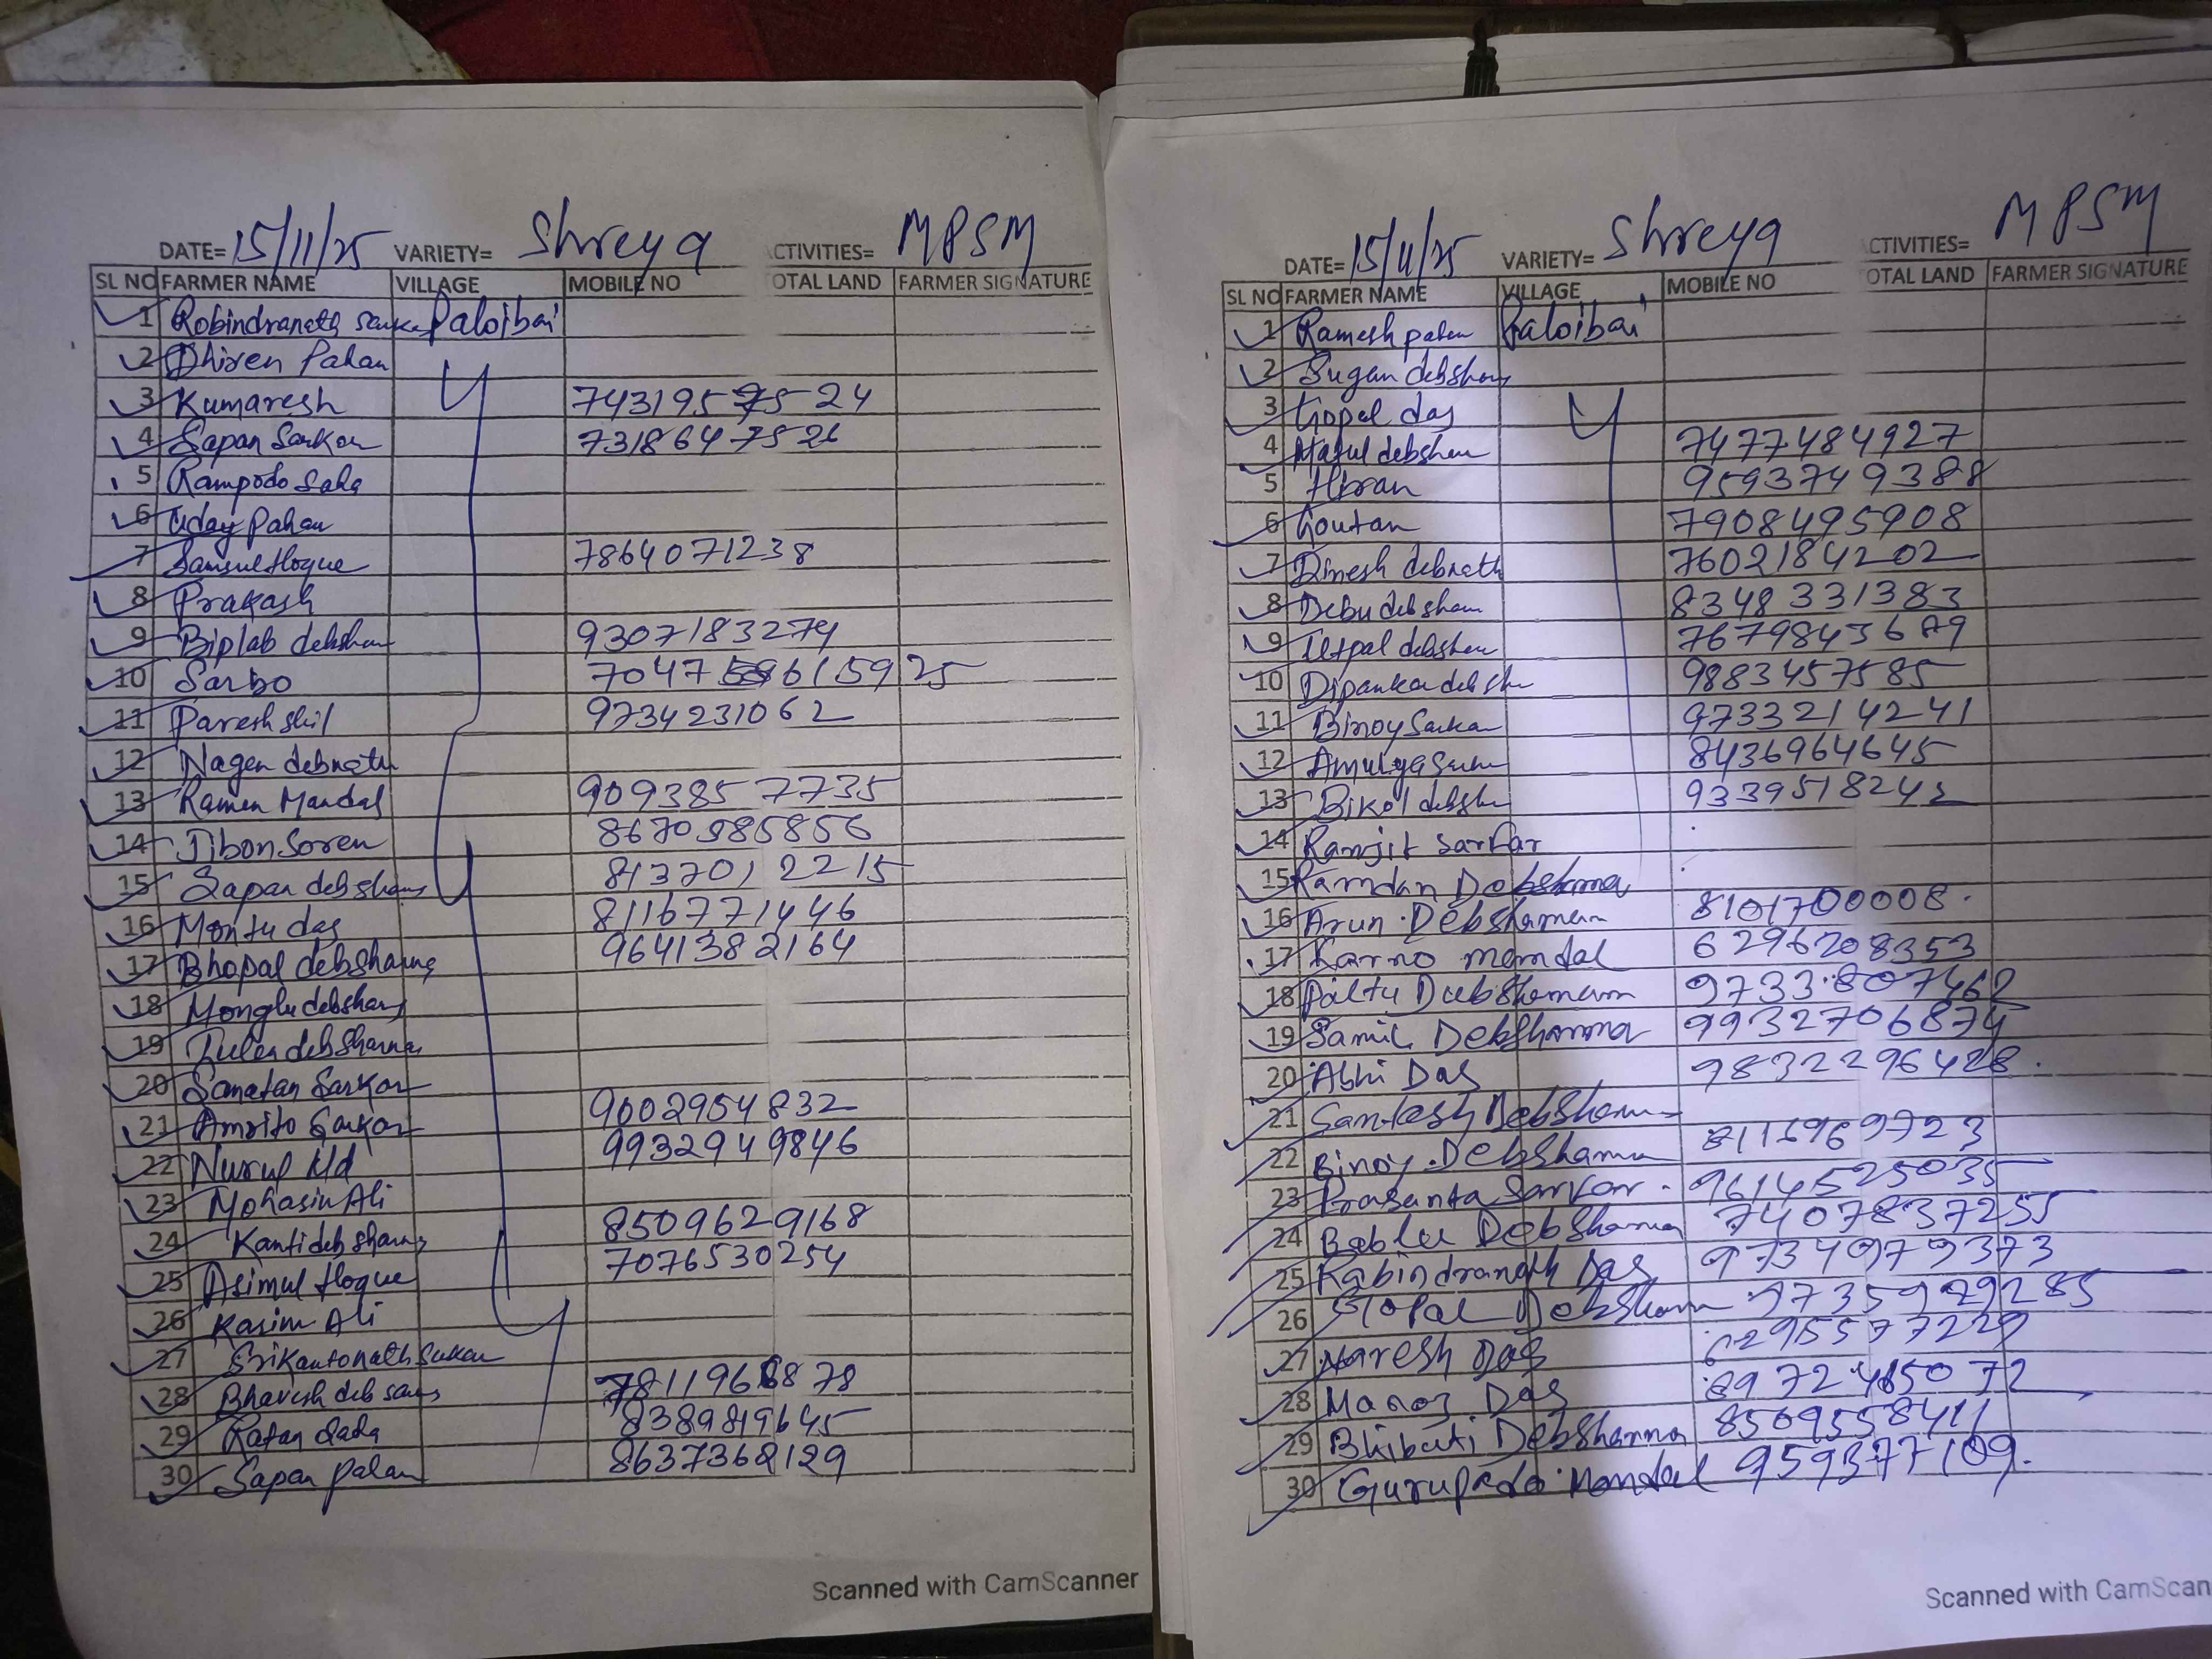 DATE= 15/11/25 VARIETY= Shreya CTIVITIES= MPSM
SL NO FARMER NAME VILLAGE MOBILE NO OTAL LAND FARMER SIGNATURE
1 Robindranath Sarkar Paloibari
2 Dhiren Pahan
3 Kumaresh 7431957524
4 Sapan Sarkar 7318647526
5 Rampodo Saha
6 Uday Pahan
7 Samsul Hoque 7864071238
8 Prakash
9 Biplab debsham 9307183274
10 Sarbo
11 Paresh shil 9734231062
12 Nagen debnath
13 Ramen Mandal 9093857735
14 Jibon Soren 8670585856
15 Sapan debsharma 8137012215
16 Montu das 8116771446
17 Bhopal debsharma 9641382164
18 Monglu debsharma
19 debsharma
20 Sanatan Sarkar
21 Amrito Sarkar 9002954832
22 Nurul Md 9932949846
23 Mohasin Ali
24 Kanti debsharma 8509629168
25 Asimul Hoque 7076530254
26 Kasim Ali
27 Srikantonath Sarkar
28 Bhavesh deb
29 Ratan dada 8389819645
30 Sapan Pahan 8637362129
Scanned with CamScanner
DATE= 15/11/25 VARIETY= Shreya CTIVITIES= MPSM
SL NO FARMER NAME VILLAGE MOBILE NO OTAL LAND FARMER SIGNATURE
1 Ramesh pahan Paloibari
2 Sugan debsharma
3 Gopal das
4 debsham 7477484927
5 Hiran 9593749388
6 Goutam 7908495908
7 Dinesh debnath 7602184202
8 Debu debsham 8348331383
9 Utpal debsham
10 Dipankar debsh 9883457585
11 Binoy Sarkar 9733214241
12 Amulya 8436964645
13 Bikol debsh
14 Ramjit Sarkar
15 Ramdan Debsharma
16 Arun Debsharman 8101700008
17 Karno mondal 6296208353
18 Paltu Debsharman 9733807462
19 Samil Debsharma 9932706874
20 Abhi Das 9832296428
21 Santosh Debsham
22 Binoy Debsharma 8116969723
23 Prasanta Sarkar 9614525035
24 Bablu Debsharma 7407837255
25 Rabindranath Das 9734979373
26 Gopal Debsharma 9735929285
27 Naresh Das 6295577229
28 Manoj Das
29 Bhibuti Debsharma 8509558411
30 Gurupado Mondal 959377109
Scanned with CamScan